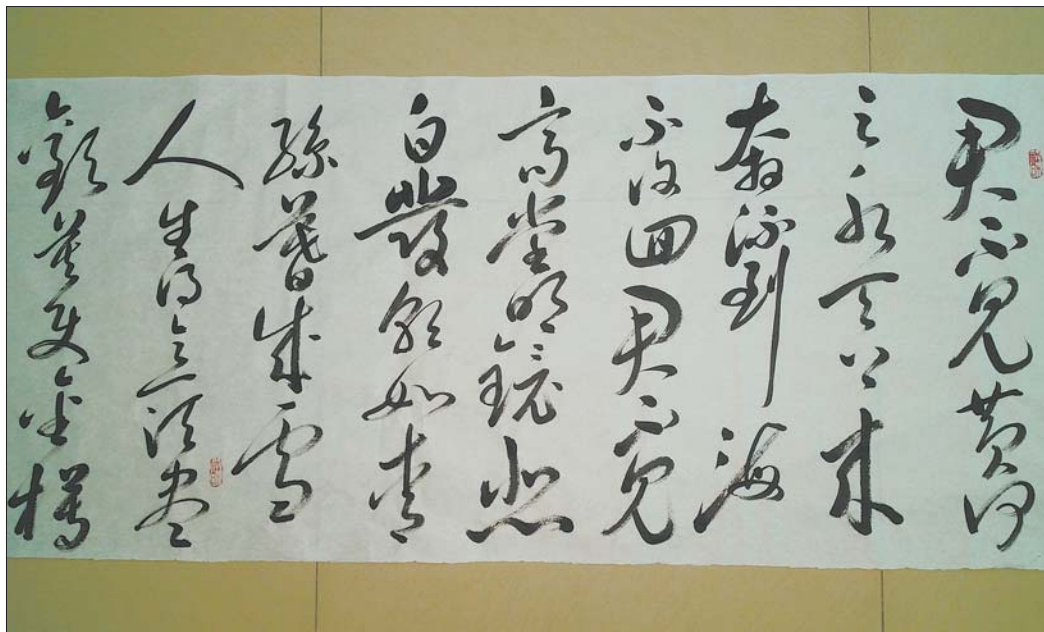 君不見黄河
之水天上来
奔流到海
不復回君不見
高堂明鏡悲
白髮朝如青
絲暮成雪
人生得意須盡
歡莫使金樽